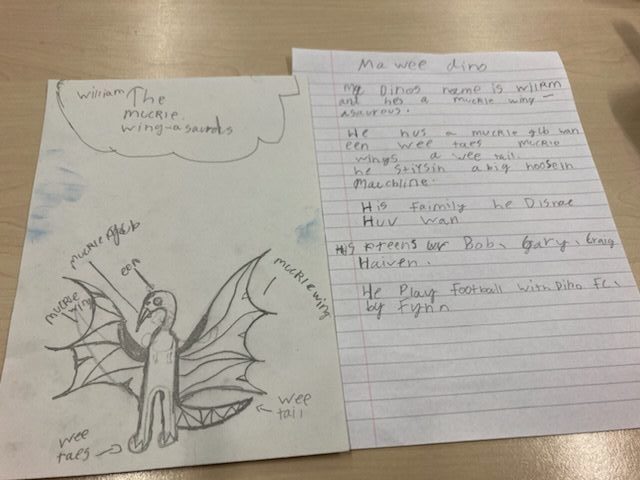 William The
muckle
wing-asaurus
muckle gleb
een
muckle wing
muckle wing
wee
tail
wee
taes
Ma wee dino
My Dinos name is William
and hes a muckle wing-
asaurous.
He hus a muckle glb wan
een wee taes muckle
wings a wee tail.
he stiys in a big hoose in
Mauchline.
His faimily he Disnae
Huv wan
His freens ur Bob, Gary, Craig
Haiven.
He Play football with Dino FC.
by Fynn